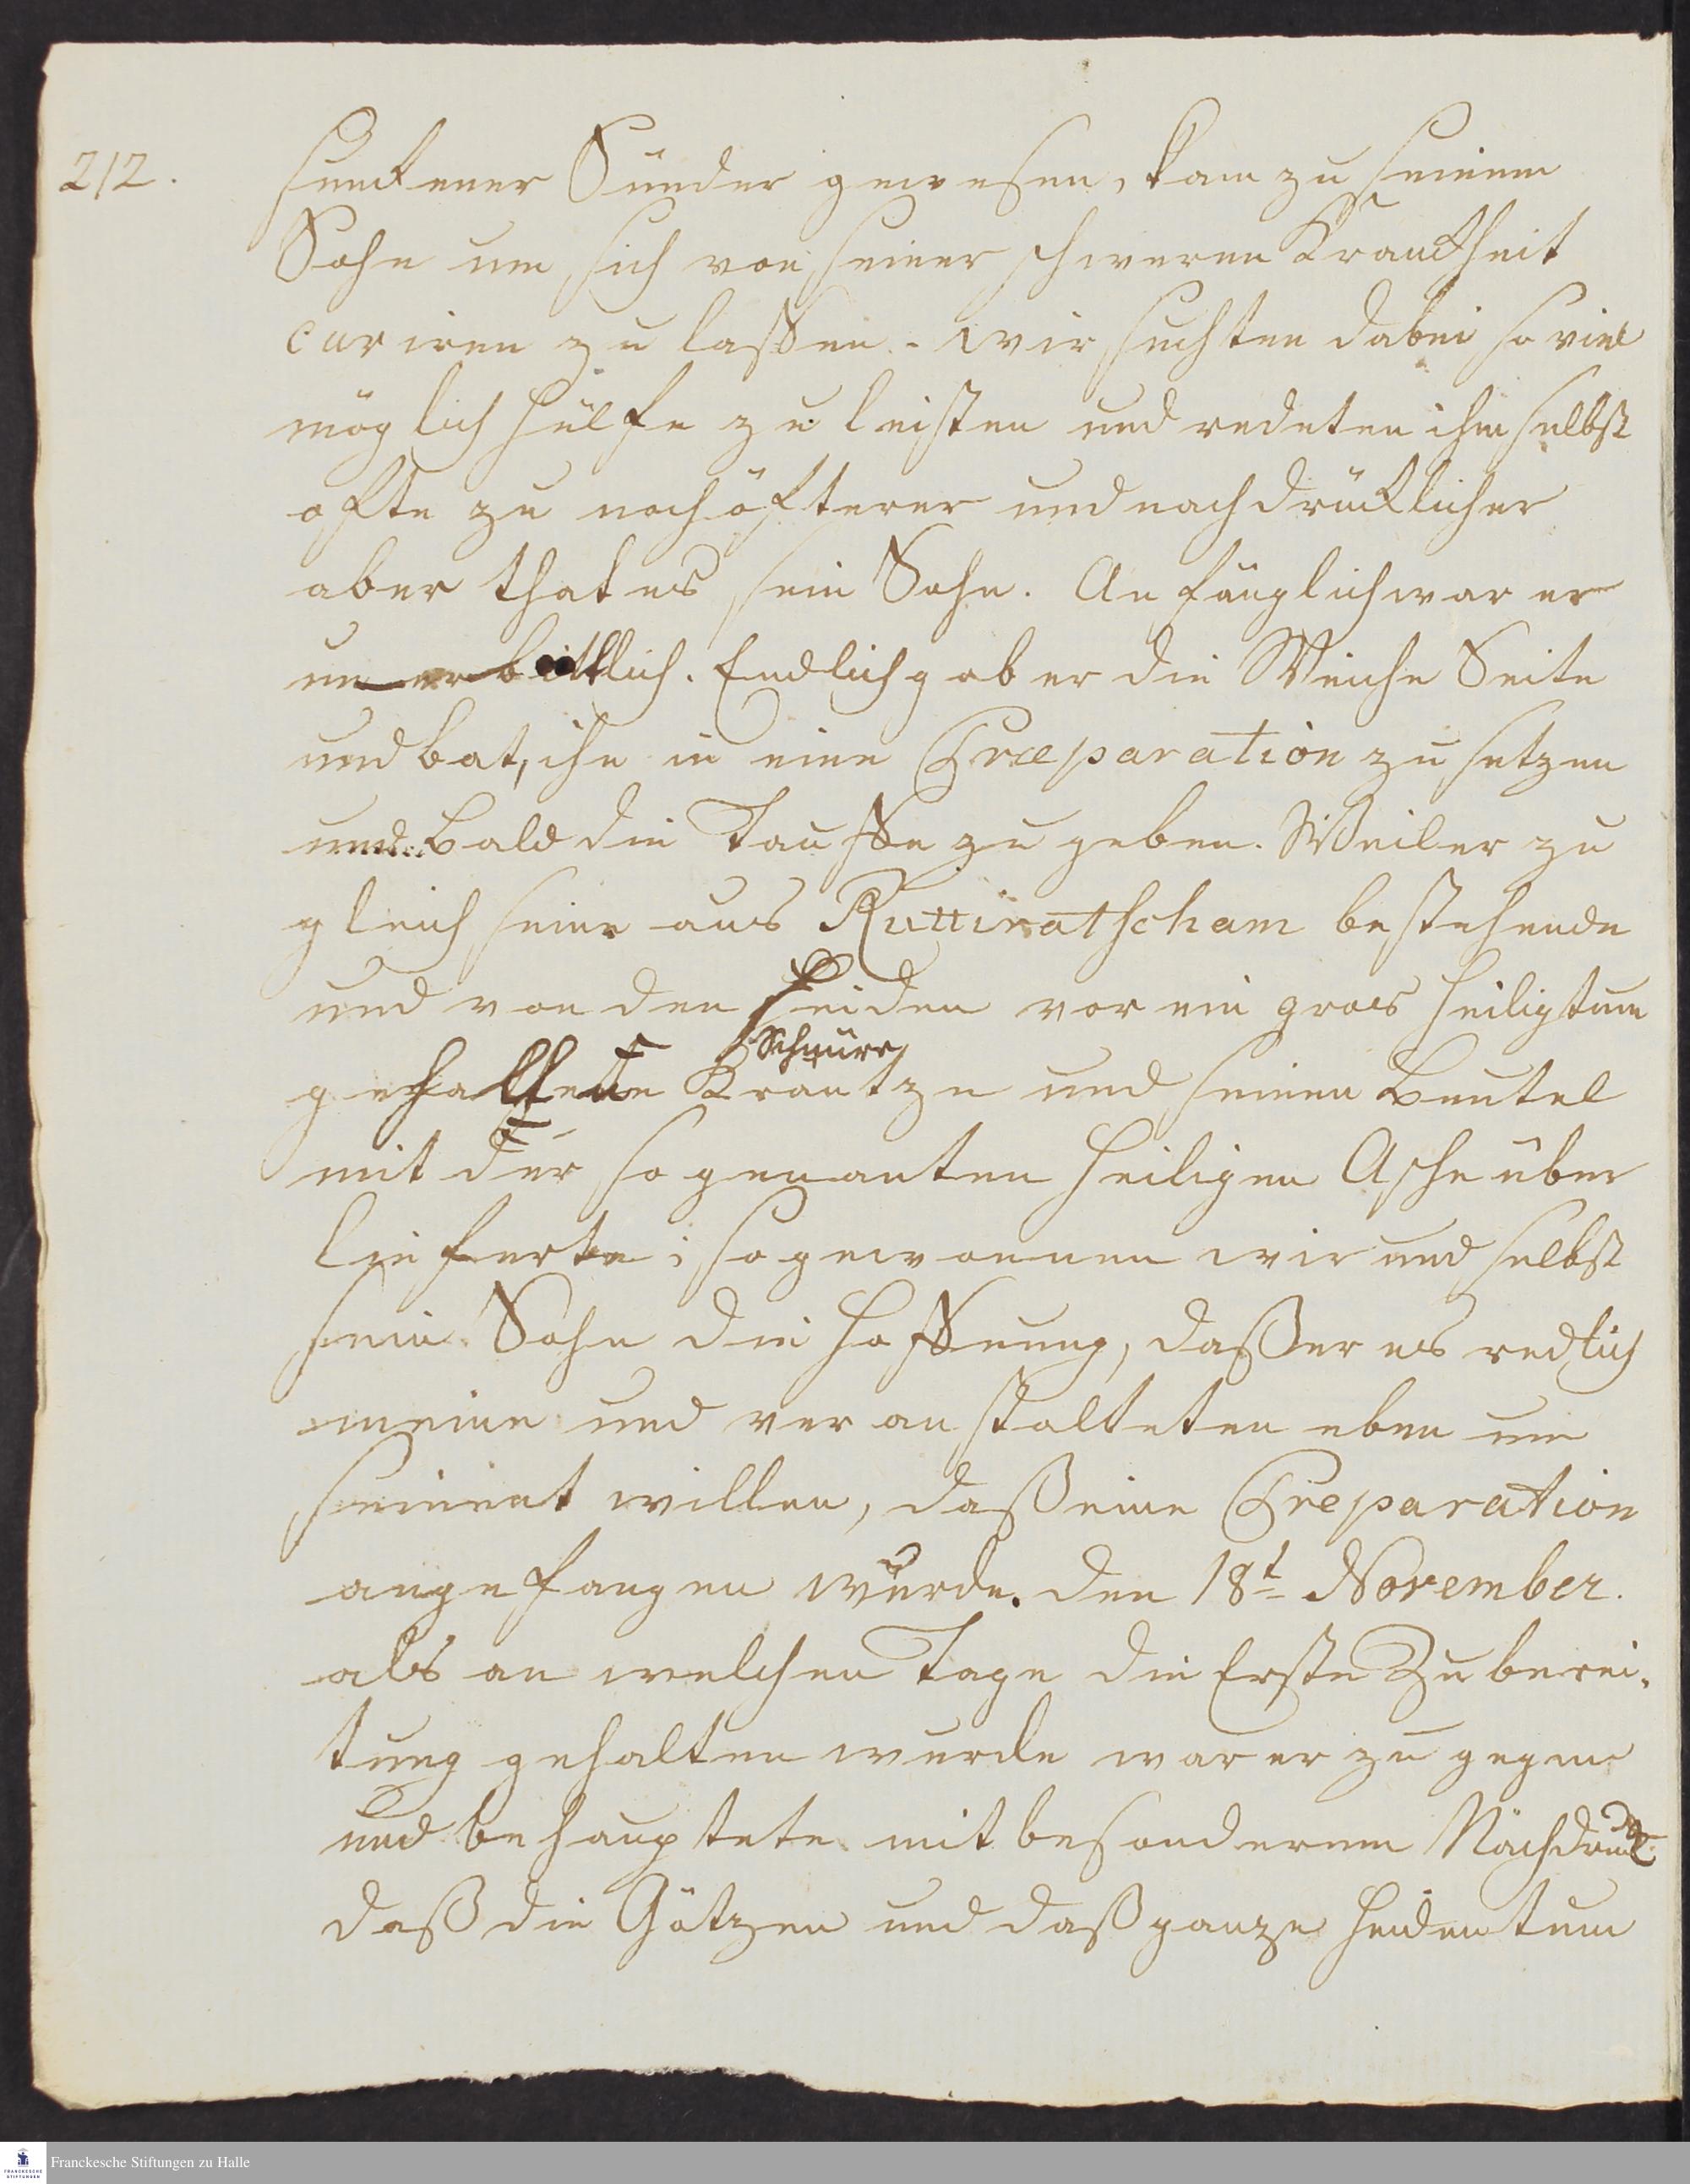 212.
sunckener Sünder gewesen, kam zu seinem
Sohn um sich von seiner schweren Kranckheit
curiren zu lassen. wir suchten dabei so viel
möglich hülfe zu leisten und redeten ihm selbst
ofte zu noch öfterer und nachdrücklicher
aber that es sein Sohn. Anfänglich war er
unerbittlich. Endlich gab er die Weiche Seite
und bat, ihn in eine Præparation zu setzen
und bald die Tauffe zu geben. Weil er zu
gleich seine aus Ruttiratscham bestehende
und von den Heiden vor ein gros Heiligtum
Schnüre
gehaltene Krantze und seinen Beutel
mit der so genanten heiligen Asche über
lieferte; so gewonnen wir und selbst
sein Sohn die Hoffnung, daß er es redlich
meine und veranstalteten eben um
seinent willen, daß eine Preparation
angefangen würde. den 18t November.
als an welchen Tage die Erste Zuberei-
tung gehalten wurde war er zu gegen
und behauptete mit besonderem Nachdruck
daß die Götzen und daß ganze Heidentum
Franckesche Stiftungen zu Halle